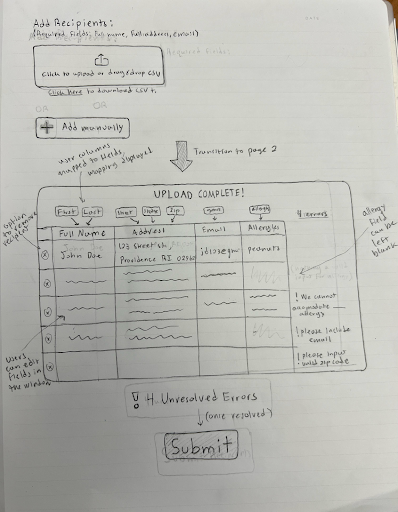 Add Recipients:
(Required fields: full name, full address, email)
Click to upload or drag & drop CSV
Click Here to download CSV
OR
+ Add manually
Transition to page 2
user columns
mapped to fields,
mapping displayed
UPLOAD COMPLETE!
First Last Street State Zip email allergy
Full Name Address Email Allergies 4 errors
option
to remove
recipient
allergy
field
can be
left
blank
John Doe
123 Street St.
Providence RI
jdoe@gm
peanuts
! We cannot
accomodate
allergy
! please include
email
! please input
valid zip code
Users
can edit
fields in
the window
! 4 Unresolved Errors
(once resolved?)
Submit